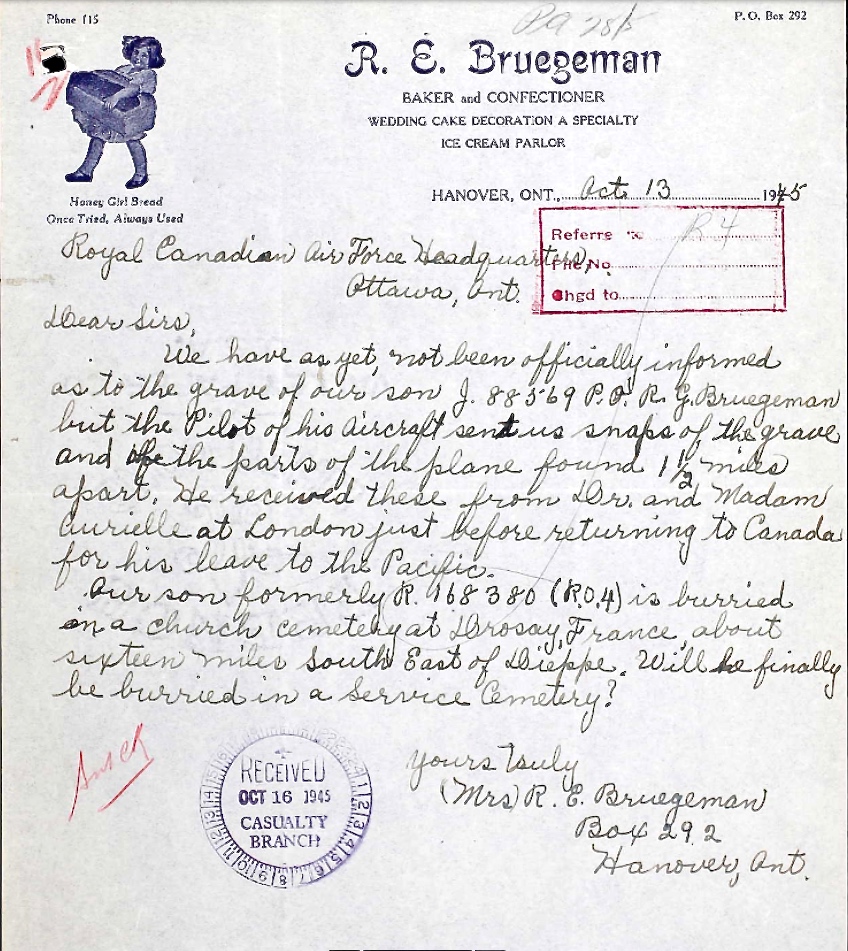 Phone 115
P. O. Box 292
R. E. Bruegeman
BAKER and CONFECTIONER
WEDDING CAKE DECORATION A SPECIALTY
ICE CREAM PARLOR
Honey Girl Bread
Once Tried, Always Used
HANOVER, ONT., Oct. 13 1945
Referre to R4
File No.
Chgd to
Royal Canadian Air Force Headquarters,
Ottawa, Ont.
Dear Sirs,
We have as yet, not been officially informed
as to the grave of our son J. 88569 P.O. R. G. Bruegeman
but the Pilot of his Aircraft sent us snaps of the grave
and the parts of the plane found 1½ miles
apart. He received these from Dr. and Madam
Aurielle at London just before returning to Canada
for his leave to the Pacific.
Our son formerly R. 168380 (R.O.4) is burried
in a church cemetery at Drosay, France, about
sixteen miles South East of Dieppe. Will he finally
be burried in a Service Cemetery?
Yours Truly
(Mrs) R. E. Bruegeman
Box 292
Hanover, Ont.
RECEIVED
OCT 16 1945
CASUALTY
BRANCH